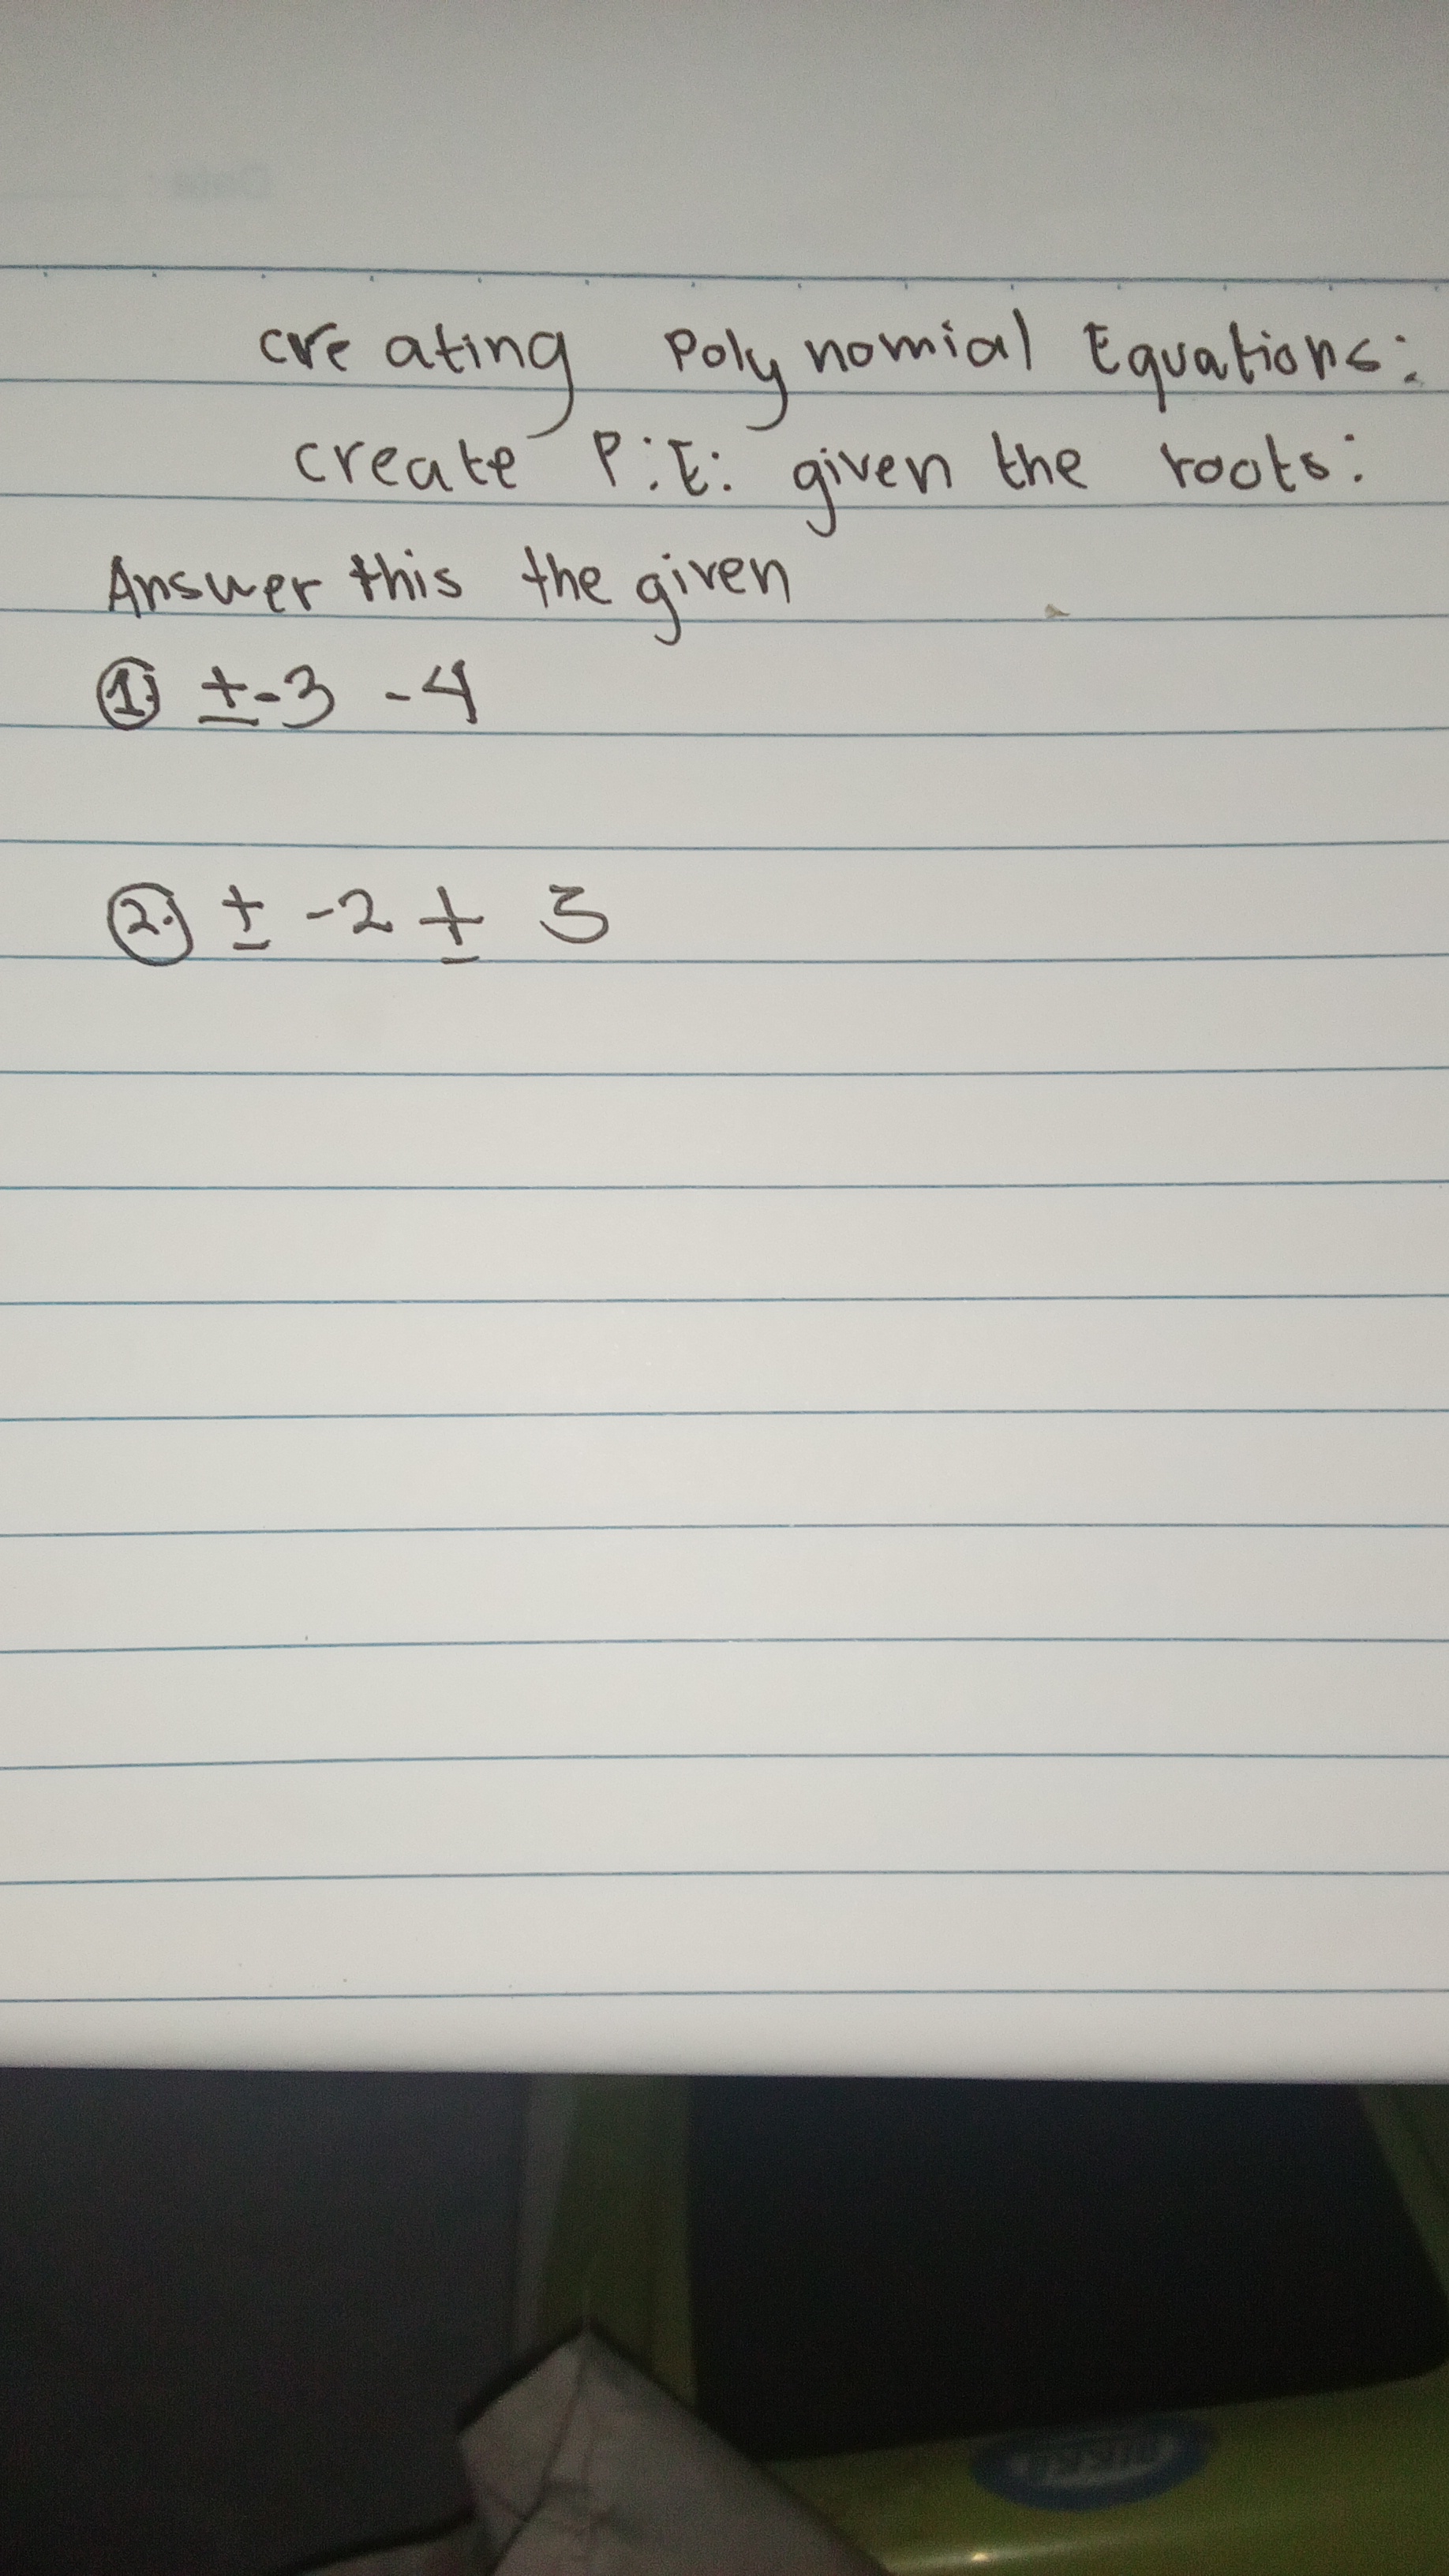 creating Polynomial Equations:
create P.E: given the roots:
Answer this the given
1. ± -3 -4
2. ± -2 ± 3